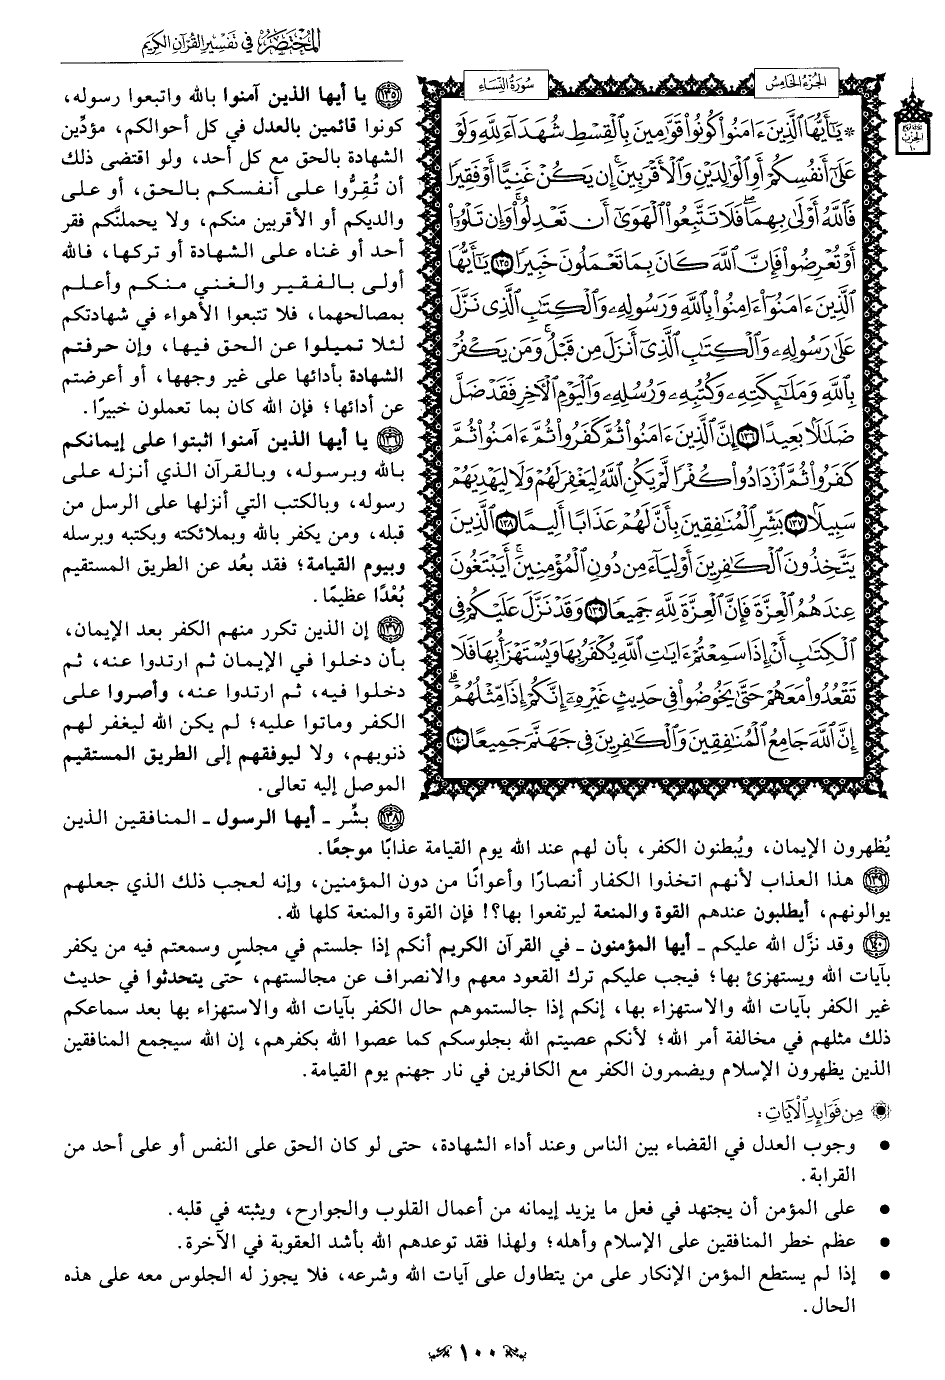 المختصر في تفسير القرآن الكريم
الجزء الخامس
سورة النساء
۞ يَٰٓأَيُّهَا ٱلَّذِينَ ءَامَنُواْ كُونُواْ قَوَّٰمِينَ بِٱلۡقِسۡطِ شُهَدَآءَ لِلَّهِ وَلَوۡ
عَلَىٰٓ أَنفُسِكُمۡ أَوِ ٱلۡوَٰلِدَيۡنِ وَٱلۡأَقۡرَبِينَۚ إِن يَكُنۡ غَنِيًّا أَوۡ فَقِيرٗا
فَٱللَّهُ أَوۡلَىٰ بِهِمَاۖ فَلَا تَتَّبِعُواْ ٱلۡهَوَىٰٓ أَن تَعۡدِلُواْۚ وَإِن تَلۡوُۥٓاْ
أَوۡ تُعۡرِضُواْ فَإِنَّ ٱللَّهَ كَانَ بِمَا تَعۡمَلُونَ خَبِيرٗا ١٣٥ يَٰٓأَيُّهَا
ٱلَّذِينَ ءَامَنُوٓاْ ءَامِنُواْ بِٱللَّهِ وَرَسُولِهِۦ وَٱلۡكِتَٰبِ ٱلَّذِي نَزَّلَ
عَلَىٰ رَسُولِهِۦ وَٱلۡكِتَٰبِ ٱلَّذِيٓ أَنزَلَ مِن قَبۡلُۚ وَمَن يَكۡفُرۡ
بِٱللَّهِ وَمَلَٰٓئِكَتِهِۦ وَكُتُبِهِۦ وَرُسُلِهِۦ وَٱلۡيَوۡمِ ٱلۡأٓخِرِ فَقَدۡ ضَلَّ
ضَلَٰلَۢا بَعِيدًا ١٣٦ إِنَّ ٱلَّذِينَ ءَامَنُواْ ثُمَّ كَفَرُواْ ثُمَّ ءَامَنُواْ ثُمَّ
كَفَرُواْ ثُمَّ ٱزۡدَادُواْ كُفۡرٗا لَّمۡ يَكُنِ ٱللَّهُ لِيَغۡفِرَ لَهُمۡ وَلَا لِيَهۡدِيَهُمۡ
سَبِيلَۢا ١٣٧ بَشِّرِ ٱلۡمُنَٰفِقِينَ بِأَنَّ لَهُمۡ عَذَابًا أَلِيمًا ١٣٨ ٱلَّذِينَ
يَتَّخِذُونَ ٱلۡكَٰفِرِينَ أَوۡلِيَآءَ مِن دُونِ ٱلۡمُؤۡمِنِينَۚ أَيَبۡتَغُونَ
عِندَهُمُ ٱلۡعِزَّةَ فَإِنَّ ٱلۡعِزَّةَ لِلَّهِ جَمِيعٗا ١٣٩ وَقَدۡ نَزَّلَ عَلَيۡكُمۡ فِي
ٱلۡكِتَٰبِ أَنۡ إِذَا سَمِعۡتُمۡ ءَايَٰتِ ٱللَّهِ يُكۡفَرُ بِهَا وَيُسۡتَهۡزَأُ بِهَا فَلَا
تَقۡعُدُواْ مَعَهُمۡ حَتَّىٰ يَخُوضُواْ فِي حَدِيثٍ غَيۡرِهِۦٓ إِنَّكُمۡ إِذٗا مِّثۡلُهُمۡۗ
إِنَّ ٱللَّهَ جَامِعُ ٱلۡمُنَٰفِقِينَ وَٱلۡكَٰفِرِينَ فِي جَهَنَّمَ جَمِيعًا ١٤٠
١٣٥ يا أيها الذين آمنوا بالله واتبعوا رسوله،
كونوا قائمين بالعدل في كل أحوالكم، مؤدِّين
الشهادة بالحق مع كل أحد، ولو اقتضى ذلك
أن تُقِرُّوا على أنفسكم بالحق، أو على
والديكم أو الأقربين منكم، ولا يحملنَّكم فقر
أحد أو غناه على الشهادة أو تركها، فالله
أولى بالفقير والغني منكم وأعلم
بمصالحهما، فلا تتبعوا الأهواء في شهادتكم
لئلا تميلوا عن الحق فيها، وإن حرفتم
الشهادة بأدائها على غير وجهها، أو أعرضتم
عن أدائها؛ فإن الله كان بما تعملون خبيرًا.
١٣٦ يا أيها الذين آمنوا اثبتوا على إيمانكم
بالله وبرسوله، وبالقرآن الذي أنزله على
رسوله، وبالكتب التي أنزلها على الرسل من
قبله، ومن يكفر بالله وبملائكته وبكتبه وبرسله
وبيوم القيامة؛ فقد بعُد عن الطريق المستقيم
بُعْدًا عظيمًا.
١٣٧ إن الذين تكرر منهم الكفر بعد الإيمان،
بأن دخلوا في الإيمان ثم ارتدوا عنه، ثم
دخلوا فيه، ثم ارتدوا عنه، وأصروا على
الكفر وماتوا عليه؛ لم يكن الله ليغفر لهم
ذنوبهم، ولا ليوفقهم إلى الطريق المستقيم
الموصل إليه تعالى.
١٣٨ بشِّر ـ أيها الرسول ـ المنافقين الذين
يُظهرون الإيمان، ويُبطنون الكفر، بأن لهم عند الله يوم القيامة عذابًا موجعًا.
١٣٩ هذا العذاب لأنهم اتخذوا الكفار أنصارًا وأعوانًا من دون المؤمنين، وإنه لعجب ذلك الذي جعلهم
يوالونهم، أيطلبون عندهم القوة والمنعة ليرتفعوا بها؟! فإن القوة والمنعة كلها لله.
١٤٠ وقد نزَّل الله عليكم ـ أيها المؤمنون ـ في القرآن الكريم أنكم إذا جلستم في مجلسٍ وسمعتم فيه من يكفر
بآيات الله ويستهزئ بها؛ فيجب عليكم ترك القعود معهم والانصراف عن مجالستهم، حتى يتحدثوا في حديث
غير الكفر بآيات الله والاستهزاء بها، إنكم إذا جالستموهم حال الكفر بآيات الله والاستهزاء بها بعد سماعكم
ذلك مثلهم في مخالفة أمر الله؛ لأنكم عصيتم الله بجلوسكم كما عصوا الله بكفرهم، إن الله سيجمع المنافقين
الذين يظهرون الإسلام ويضمرون الكفر مع الكافرين في نار جهنم يوم القيامة.
من فوائد الآيات:
• وجوب العدل في القضاء بين الناس وعند أداء الشهادة، حتى لو كان الحق على النفس أو على أحد من
القرابة.
• على المؤمن أن يجتهد في فعل ما يزيد إيمانه من أعمال القلوب والجوارح، ويثبته في قلبه.
• عظم خطر المنافقين على الإسلام وأهله؛ ولهذا فقد توعدهم الله بأشد العقوبة في الآخرة.
• إذا لم يستطع المؤمن الإنكار على من يتطاول على آيات الله وشرعه، فلا يجوز له الجلوس معه على هذه
الحال.
١٠٠